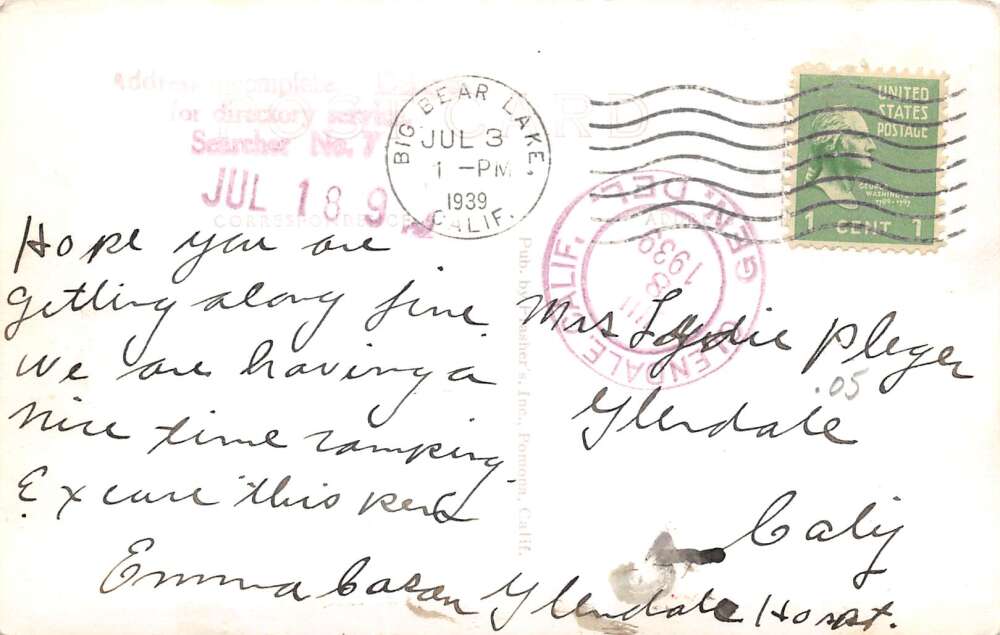 POST CARD
Address incomplete
for directory service
Searcher No. 7
JUL 18 9
BIG BEAR LAKE,
JUL 3
1 -PM
1939
CALIF.
UNITED
STATES
POSTAGE
GEORGE
WASHINGTON
1789-1797
1 CENT 1
CORRESPONDENCE
ADDRESS
GEN. DEL.
GLENDALE, CALIF.
1939
Hope you are
getting along fine
We are having a
nice time camping
Excuse this pen
Emma Cason
Pub. by Frasher's, Inc., Pomona, Calif.
Mrs Lydie Pleger
.05
Glendale
Calif
Glendale Hospt.